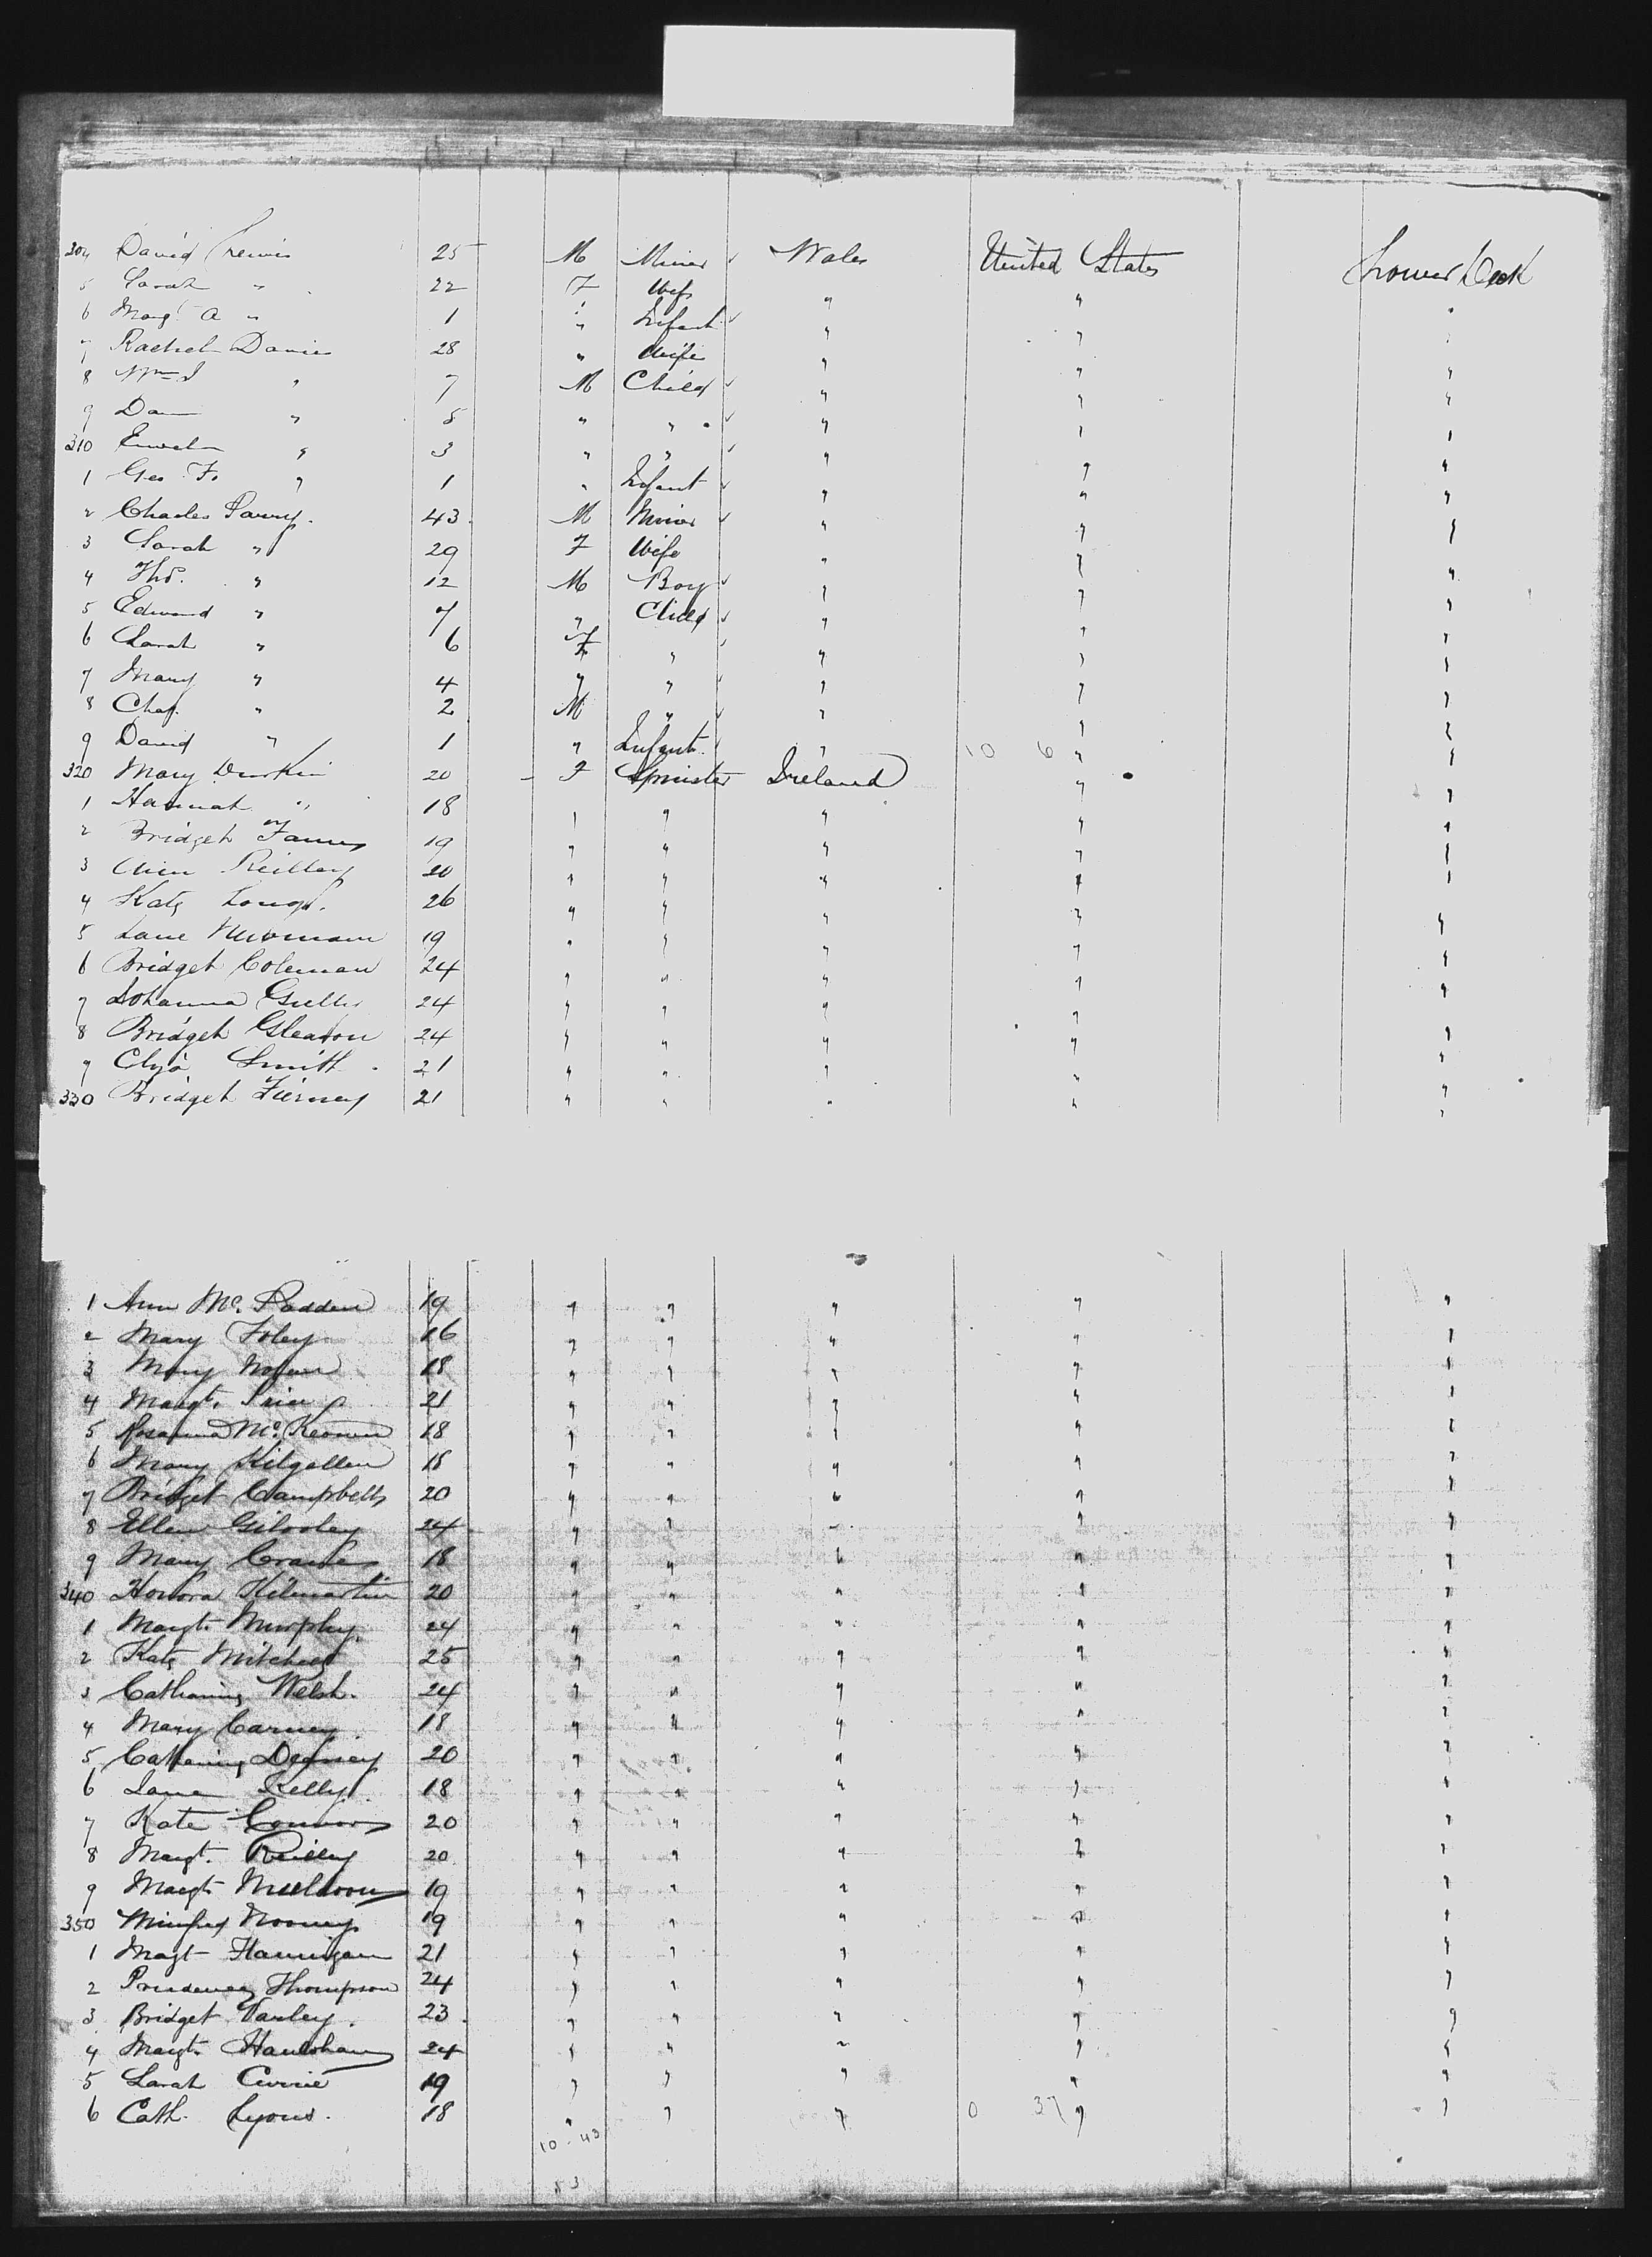 304 David Lewis 25 M Miner Wales United States Lower Deck
5 Sarah " 22 F Wife " " "
6 Margt A " 1 " Infant " " "
7 Rachel Davies 28 " Wife " " "
8 Wm J " 7 M Child " " "
9 " 5 " " " " "
310 " 3 " " " " "
1 Geo. F. " 1 " Infant " " "
2 Charles Parry. 43 M Miner " " "
3 Sarah " 29 F Wife " " "
4 Thos. " 12 M Boy " " "
5 Edward " 7 " Child " " "
6 Sarah " 6 F " " " "
7 Mary " 4 " " " " "
8 Chas. " 2 M " " " "
9 David " 1 " Infant " 10 6 " "
320 Mary Durkin 20 F Spinster Ireland " "
1 Hannah " 18 " " " " "
2 Bridget 19 " " " " "
3 Reilley 20 " " " " "
4 Kate 26 " " " " "
5 Jane Newman 19 " " " " "
6 Bridget Coleman 24 " " " " "
7 Johanna 24 " " " " "
8 Bridget Gleason 24 " " " " "
9 Eliza Smith 21 " " " " "
330 Bridget Tierney 21 " " " " "
1 Ann Mc. Padden 19 " " " " "
2 Mary Foley 16 " " " " "
3 Mary Nolan 18 " " " " "
4 Margt. 21 " " " " "
5 Rosanna Mc. Keown 18 " " " " "
6 Mary Kilgallen 18 " " " " "
7 Bridget Campbell 20 " " " " "
8 Ellen Gilooley 24 " " " " "
9 Mary 18 " " " " "
340 Honora Kilmartin 20 " " " " "
1 Margt. Murphy. 24 " " " " "
2 Kate Mitchell 25 " " " " "
3 Catharine Welsh. 24 " " " " "
4 Mary Carney 18 " " " " "
5 Catherine 20 " " " " "
6 Jane Kelly 18 " " " " "
7 Kate Connors 20 " " " " "
8 Margt. Reilly 20 " " " " "
9 Margt. Muldoon 19 " " " " "
350 Winifred Rooney 19 " " " " "
1 Magt Flannigan 21 " " " " "
2 Prudence Thompson 24 " " " " "
3 Bridget Varley. 23 " " " " "
4 Margt. 24 " " " " "
5 Sarah Currie 19 " " " " "
6 Cath. Lyons. 18 " " " 0 37 " "
10 - 43
53